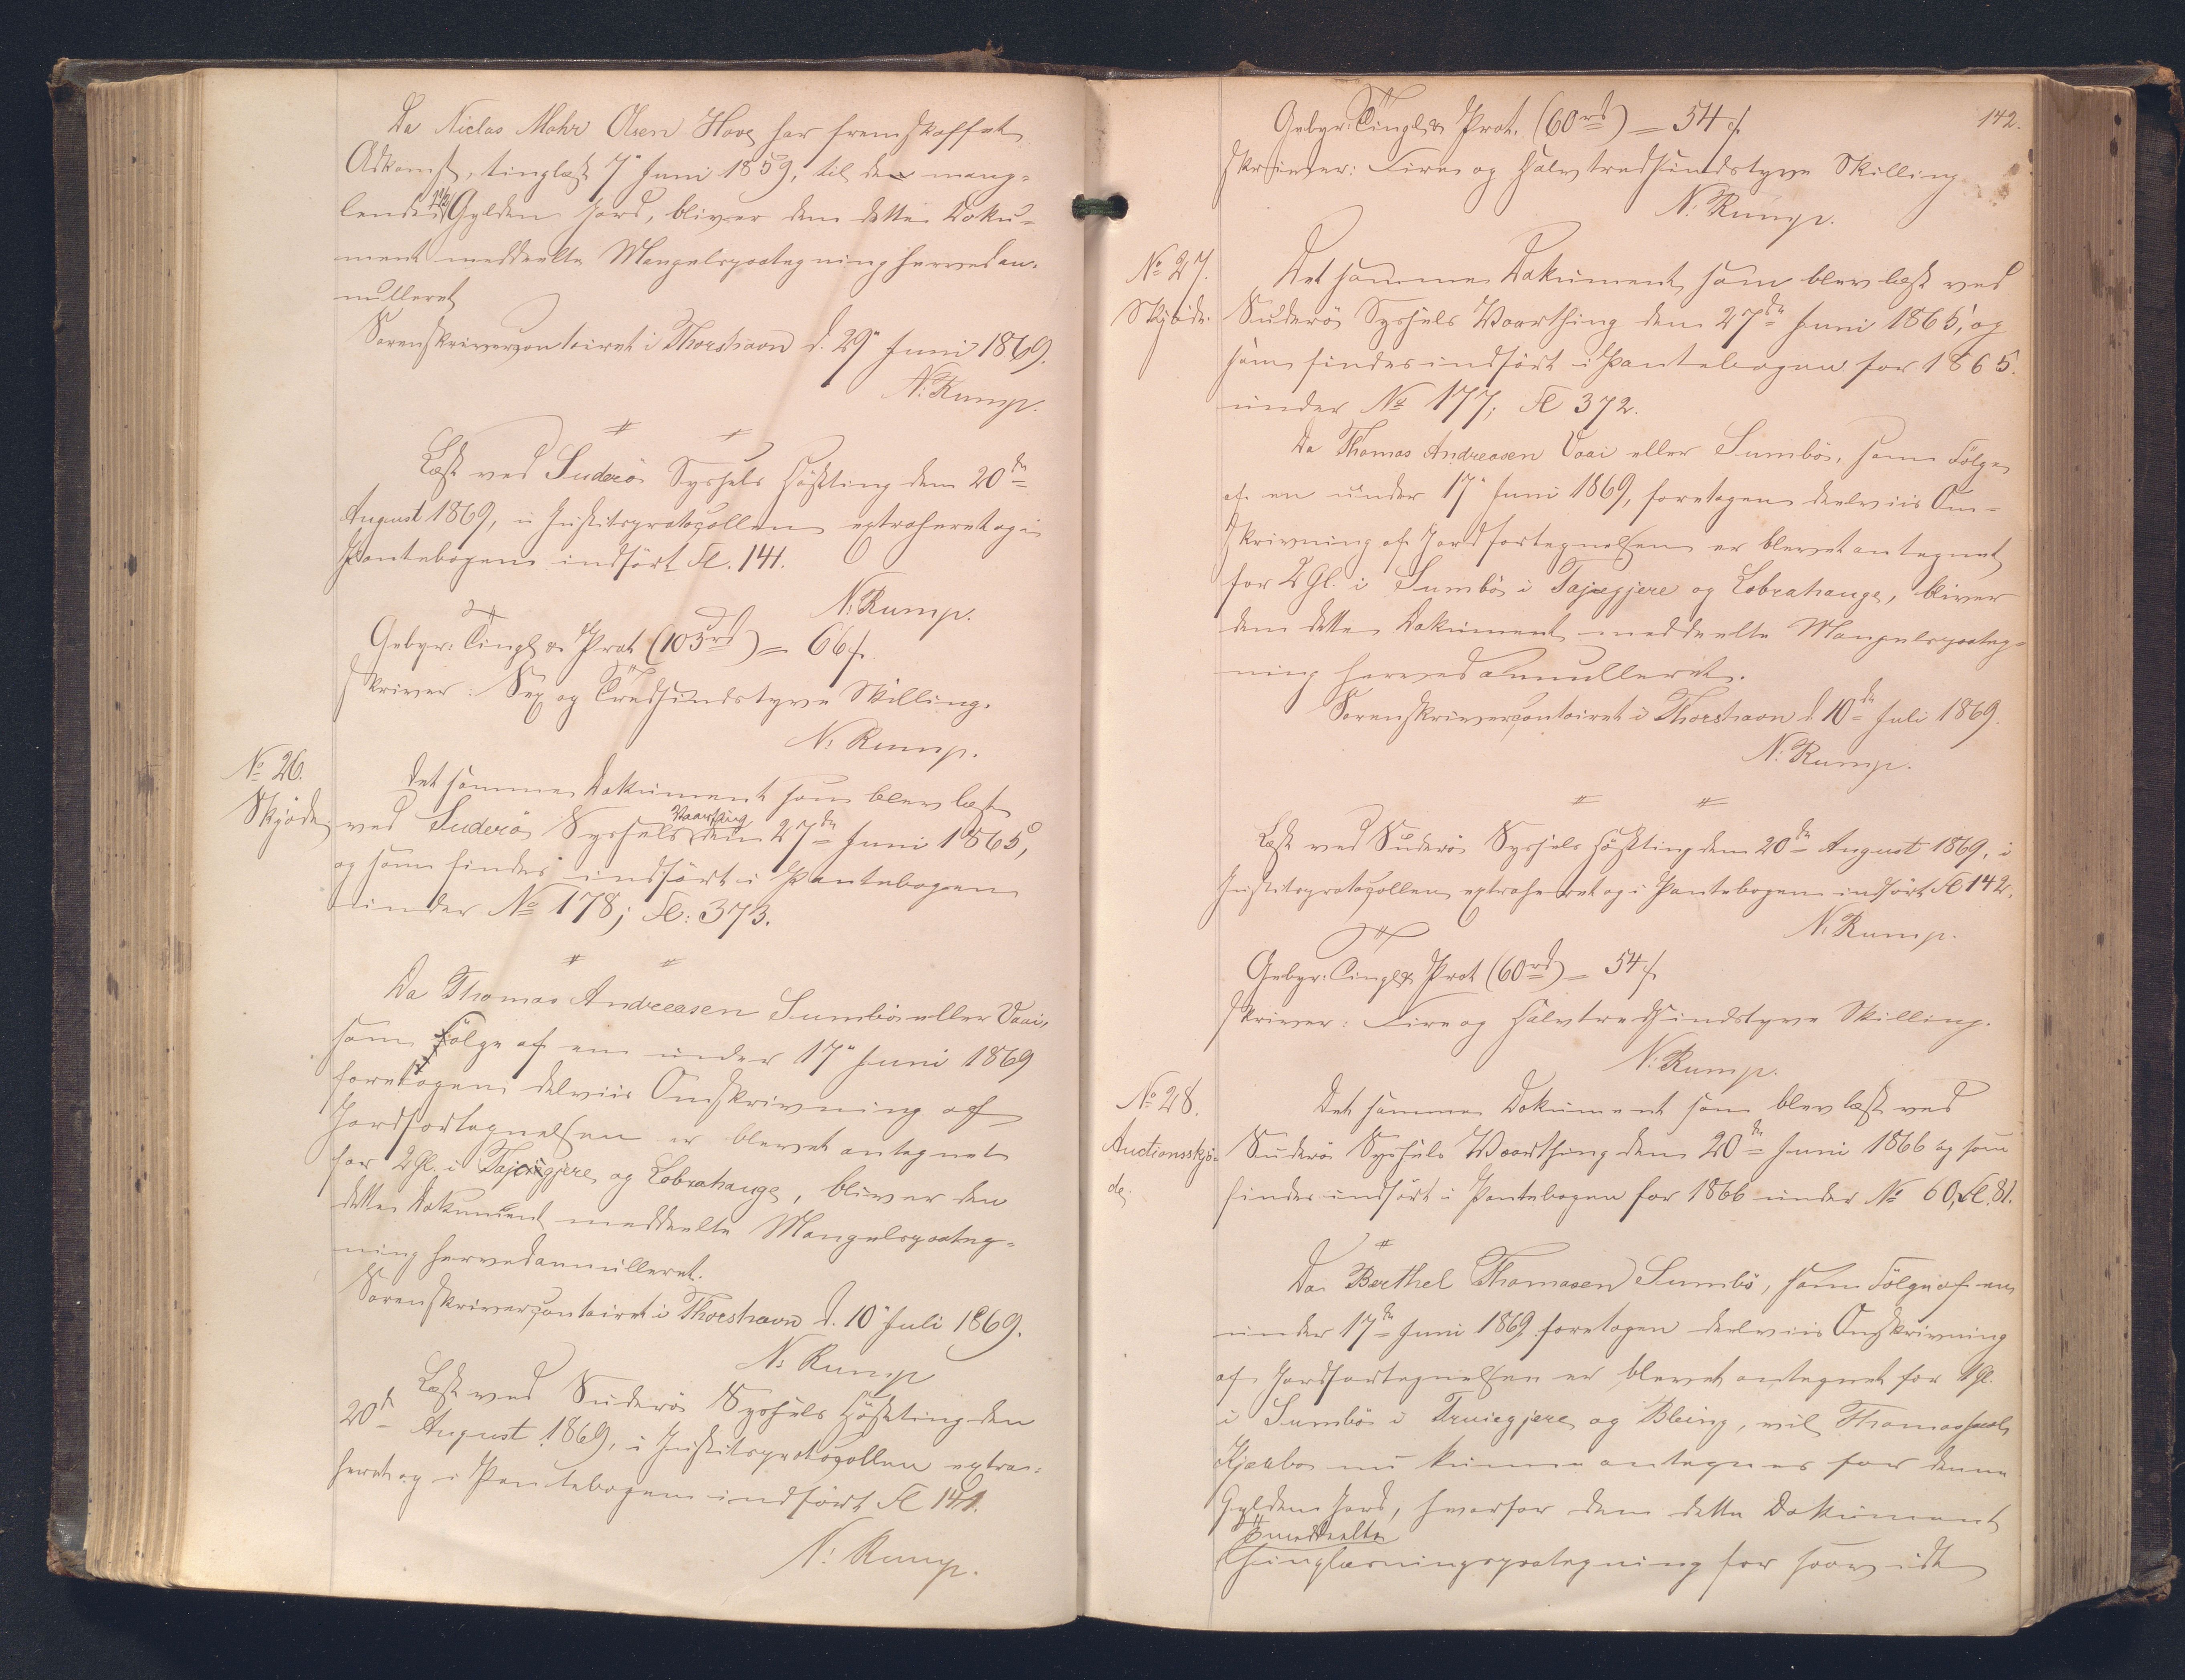 Da Niclas Mohr Olsen Hove har fremskaffet
Adkomst, tinglæst 7" Juni 1859, til de mang-
lende 1½ Gylden Jord, bliver den dette Doku-
ment meddeelte Mangelspaategning herved an-
nulleret
Sorenskrivercontoiret i Thorshavn d. 29" Juni 1869.
N: Rump.
Læst ved Suderö Syssels Höstting den 20de
August 1869, i Justitsprotocollen extraheret og i
Pantebogen indfört Fl. 141.
N: Rump.
Gebyr: Tingl & Prot (103 rd) = 66 s.
skriver: Sex og Tredsindstyve Skilling.
N: Rump.
No 26.
Skjöde
Det samme Dokument som blev læst
ved Suderö Syssels Vaarthing den 27de Juni 1865,
og som findes indfört i Pantebogen
under No 178; Fl: 373.
Da Thomas Andreasen Sumbö eller Vaai,
som Fölge af en under 17" Juni 1869
foretagen delviis Omskrivning af
Jordfortegnelsen er blevet antegnet
for 2 Gl. i Tajegjere og Lobrahauge, bliver den
dette Dokument meddeelte Mangelspaateg-
ning herved annulleret.
Sorenskrivercontoiret i Thorshavn d. 10" Juli 1869.
N: Rump
Læst ved Suderö Syssels Höstting den
20de August 1869, i Justitsprotocollen extra-
heret og i Pantebogen indfört Fl 141.
N: Rump.
142.
Gebyr: Tingl & Prot. (60 rd) = 54 s.
skriver: Fire og halvtredsindstyve Skilling
N: Rump.
No 27.
Skjöde.
Det samme Dokument, som blev læst ved
Suderö Syssels Vaarthing den 27de Juni 1865, og
som findes indfört i Pantebogen for 1865.
under No 177; Fl 372.
Da Thomas Andreasen Vaai eller Sumbö, som Fölge
af en under 17" Juni 1869, foretagen deelviis Om-
skrivning af Jordfortegnelsen er blevet antegnet
for 2 Gl. i Sumbö i Tajegjere og Lobrahauge, bliver
den dette Dokument meddeelte Mangelspaateg-
ning herved annulleret.
Sorenskrivercontoiret i Thorshavn d 10de Juli 1869.
N: Rump.
Læst ved Suderö Syssels Höstting den 20de August 1869, i
Justitsprotocollen extraheret og i Pantebogen indfört Fl 142.
N: Rump.
Gebyr: Tingl & Prot (60 rd) = 54 s.
skriver: Fire og halvtredsindstyve Skilling.
N: Rump.
No 28.
Auctionsskjö-
de.
Det samme Dokument som blev læst ved
Suderö Syssels Vaarthing den 20de Juni 1866 og som
findes indfört i Pantebogen for 1866 under No 60, Fl. 81.
Da Berthel Thomasen Sumbö, som Fölge af en
under 17de Juni 1869 foretagen deelviis Omskrivning
af Jordfortegnelsen er blevet antegnet for 1 Gl.
i Sumbö i Truiegjere og Bleing, vil Thomas
Kjærbo nu kunne antegnes for denne
Gylden Jord, hvorfor den dette Dokument
meddeelte
Thinglæsningspaategning for saavidt